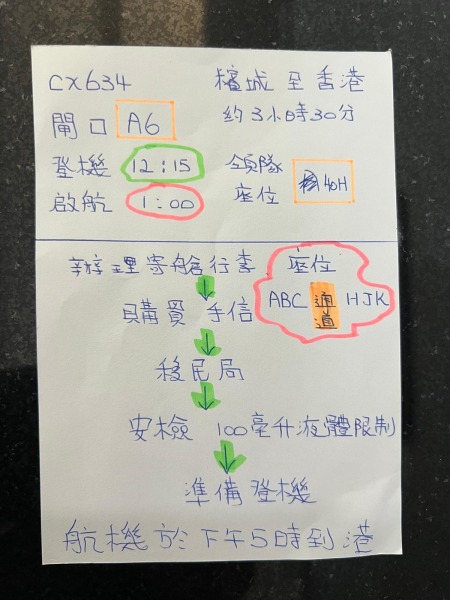 CX634
檳城至香港
約3小時30分
閘口 A6
登機 12:15
啟航 1:00
領隊
座位
40H
辦理寄艙行李
購買手信
移民局
安檢 100毫升液體限制
準備登機
座位
ABC 通道 HJK
航機於下午5時到港